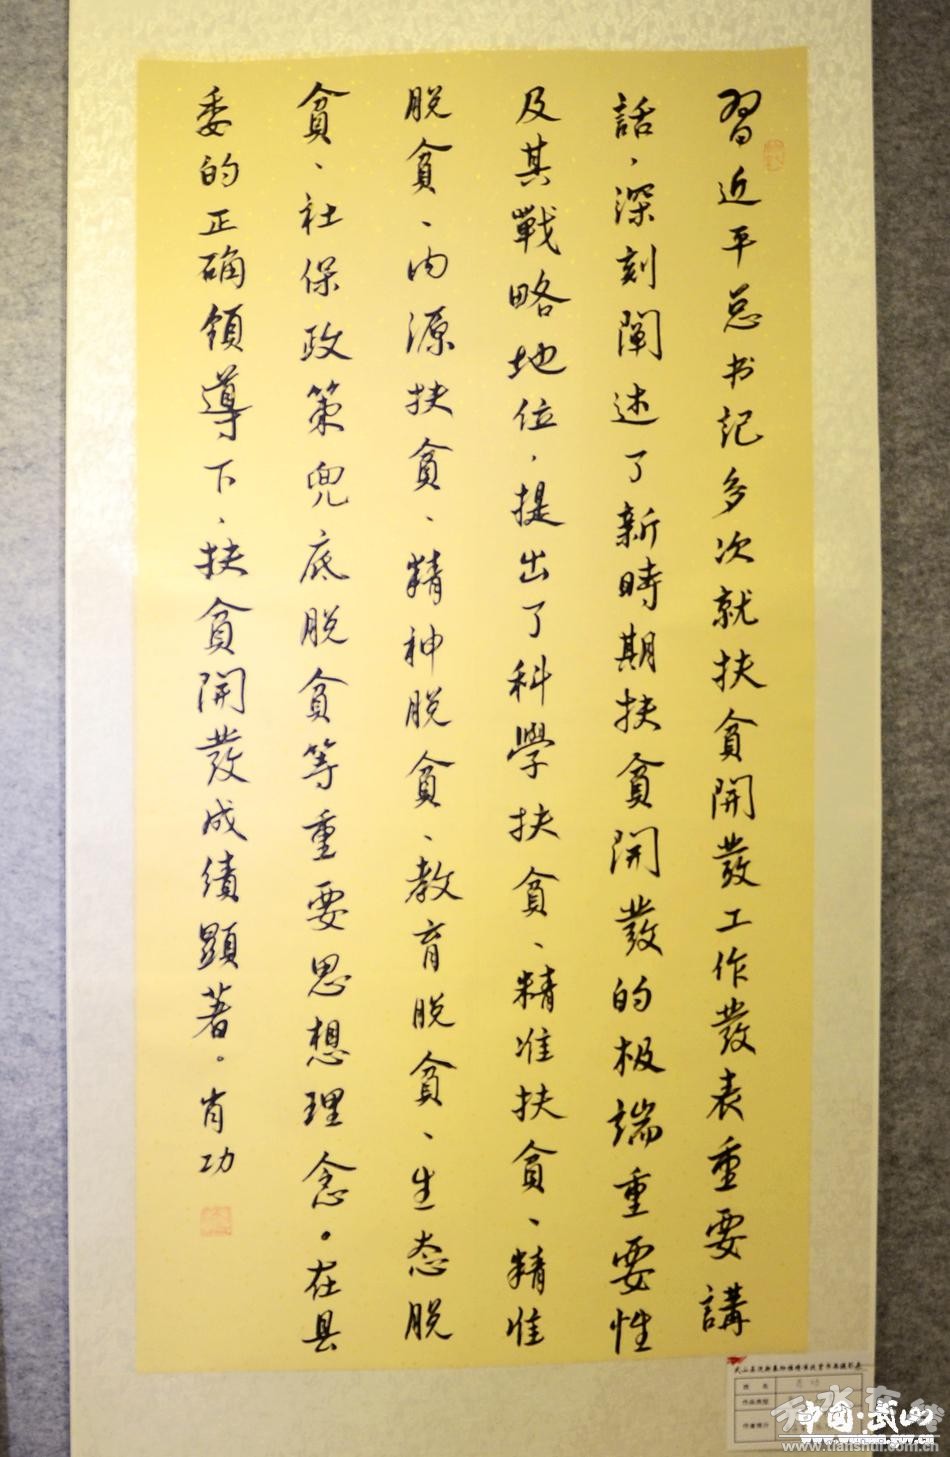 習近平总书记多次就扶貧開發工作發表重要講
話，深刻闡述了新時期扶貧開發的极端重要性
及其戰略地位，提出了科學扶貧、精准扶貧、精准
脱貧、内源扶貧、精神脱貧、教育脱貧、生态脱
貧、社保政策兜底脱貧等重要思想理念。在县
委的正确領導下、扶貧開發成績顯著。肖功
姓名
作品类型
作者简介
天水在线
中國·武山
www.tianshui.com.cn